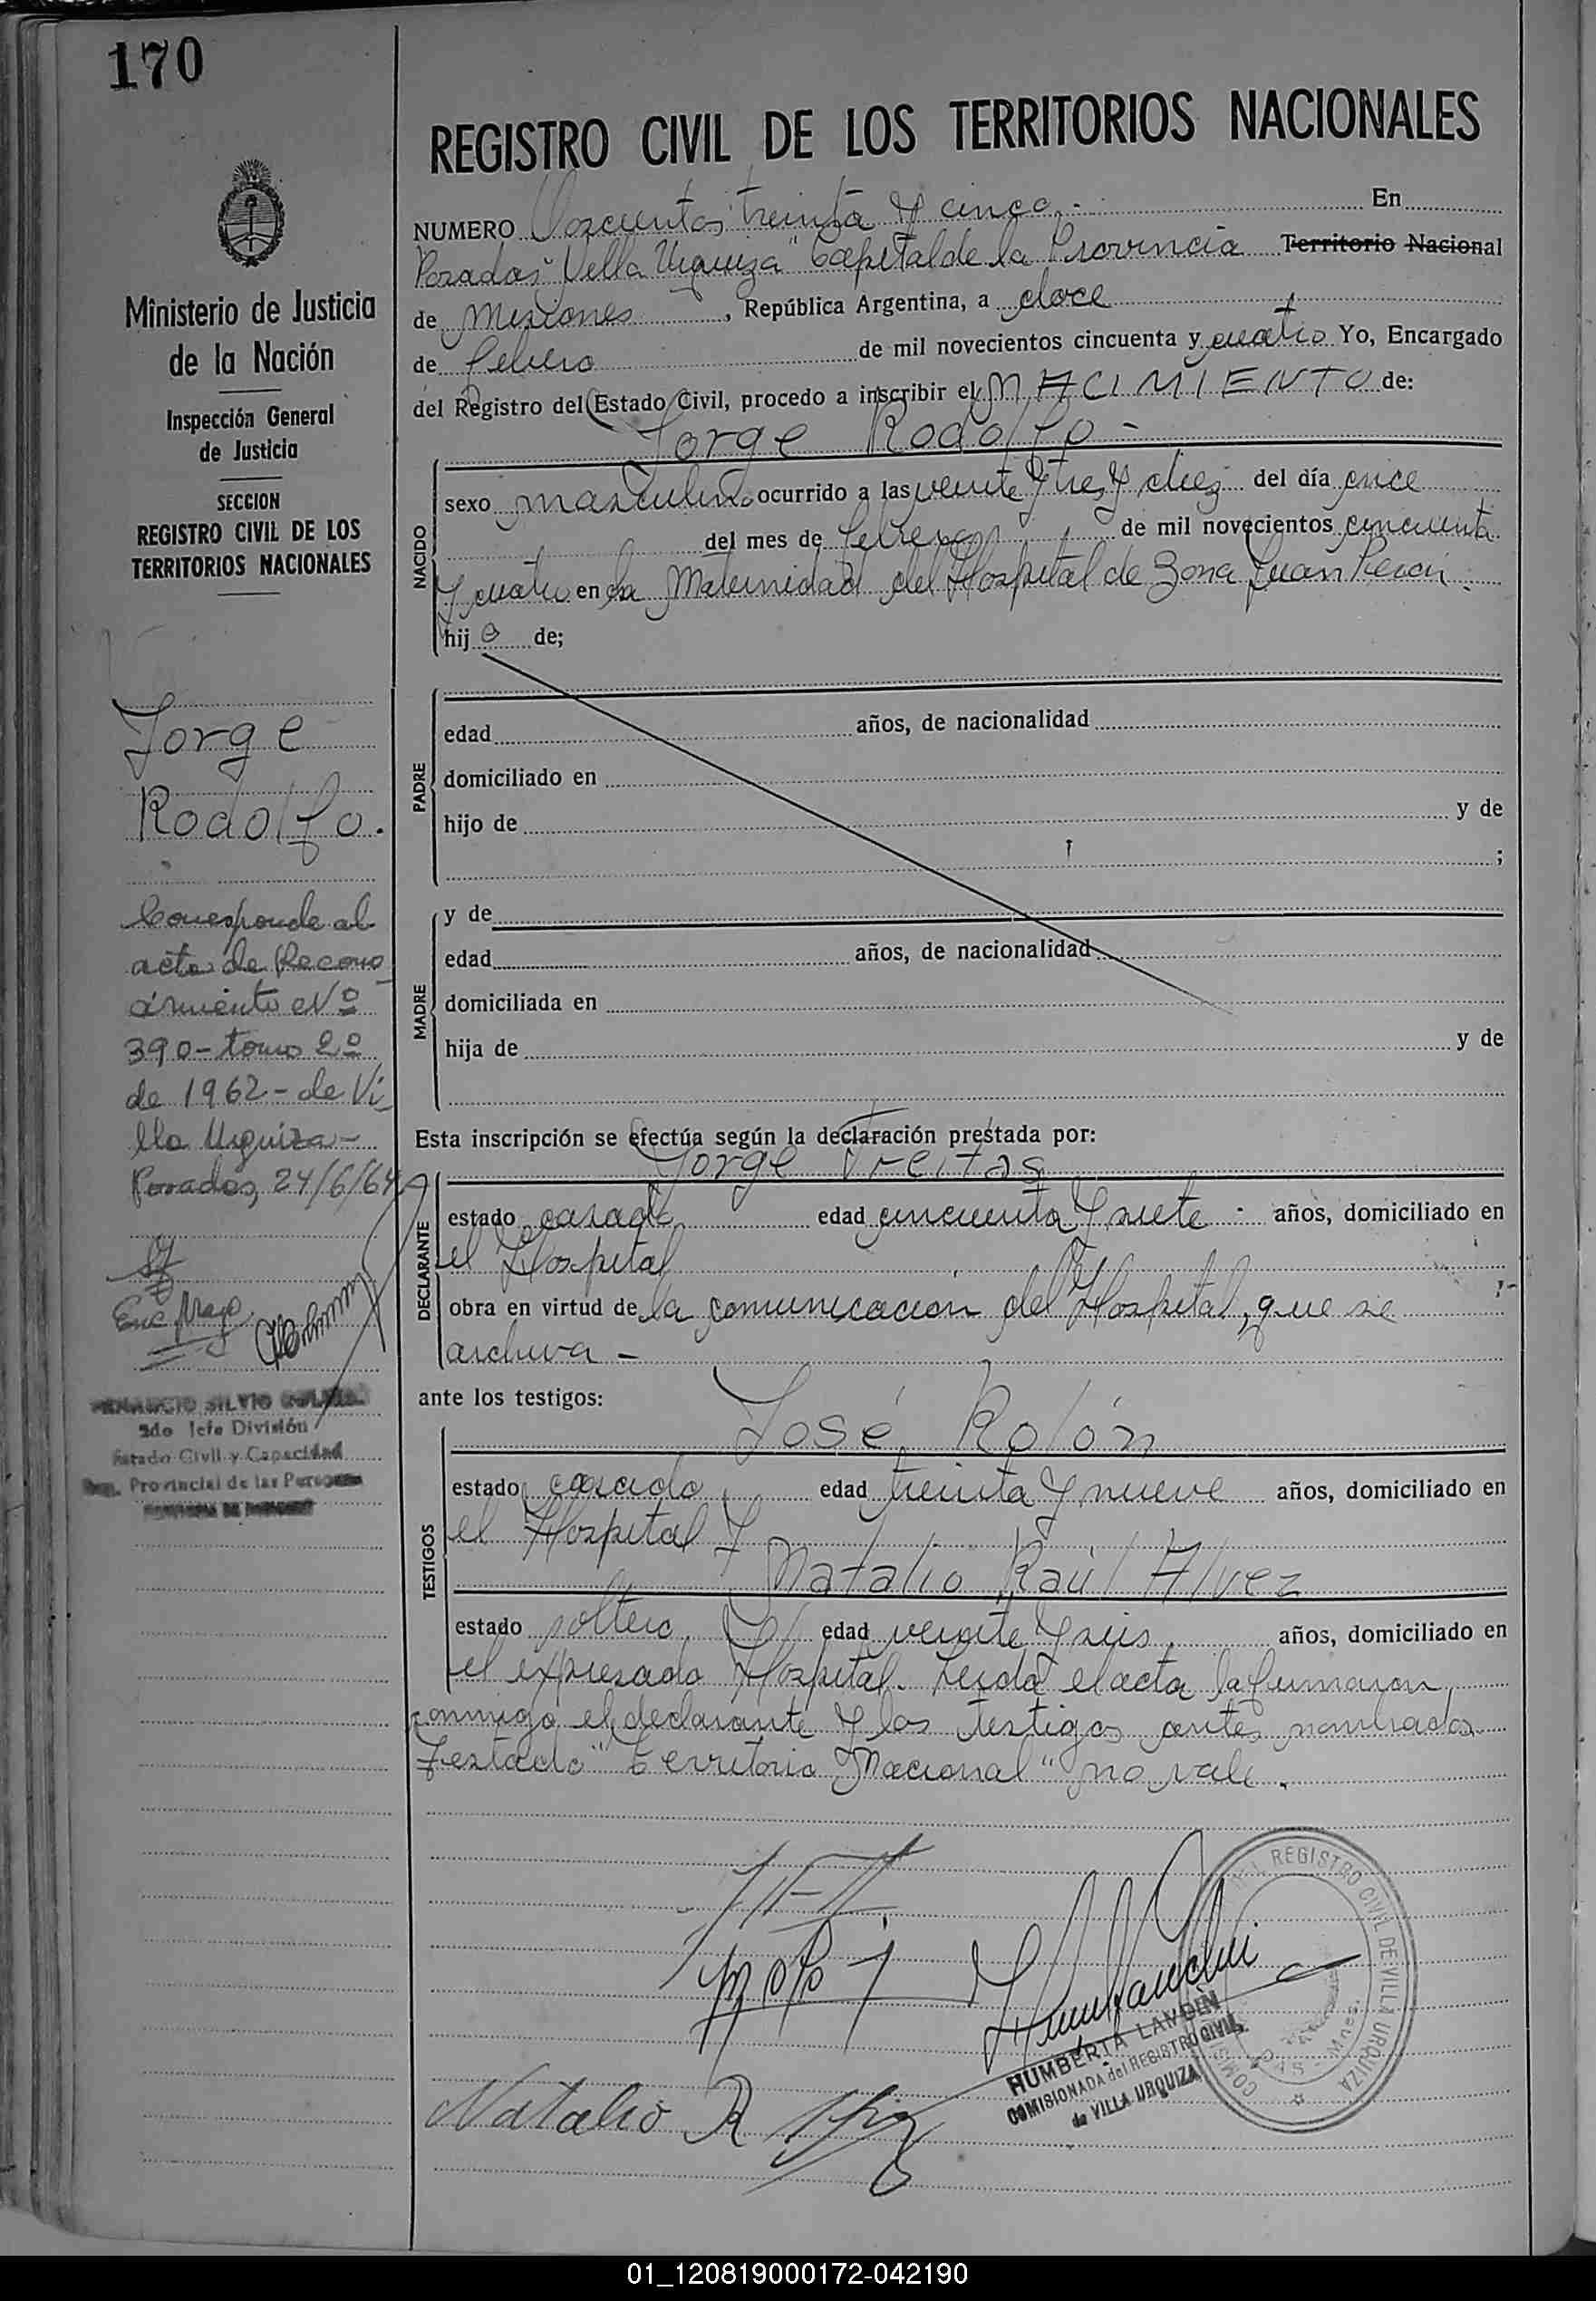 170
Ministerio de Justicia
de la Nación
Inspección General
de Justicia
SECCION
REGISTRO CIVIL DE LOS
TERRITORIOS NACIONALES
Jorge
Rodolfo.
Corresponde al
acta de Recono
cimiento Nº
390 - tomo 2º
de 1962 - de Vi
lla Urquiza -
Posadas, 24/6/64
SILVIO
2do Jefe División
Estado Civil y Capacidad
Provincial de las Personas
REGISTRO CIVIL DE LOS TERRITORIOS NACIONALES
NUMERO Doscientos treinta y cinco.- En
Posadas "Villa Urquiza" Capital de la Provincia Territorio Nacional
de Misiones, República Argentina, a doce
de febrero de mil novecientos cincuenta y cuatro Yo, Encargado
del Registro del Estado Civil, procedo a inscribir el NACIMIENTO de:
Jorge Rodolfo -
NACIDO
sexo masculino ocurrido a las veinte y tres y diez del día once
del mes de febrero de mil novecientos cincuenta
y cuatro en la Maternidad del Hospital de Zona Juan Perón.
hijo de;
PADRE
edad años, de nacionalidad
domiciliado en
hijo de y de
;
MADRE
y de
edad años, de nacionalidad
domiciliada en
hija de y de
Esta inscripción se efectúa según la declaración prestada por:
Jorge Freitas
DECLARANTE
estado casado edad cincuenta y siete - años, domiciliado en
el Hospital
obra en virtud de la comunicación del Hospital, que se
archiva -
ante los testigos:
José Rolón
TESTIGOS
estado casado edad treinta y nueve años, domiciliado en
el Hospital y
Natalio Raúl Alvez
estado soltero, edad veinte y seis, años, domiciliado en
el expresado Hospital. Leída el acta la firmaron
conmigo el declarante y los testigos antes nombrados
Testado "Territorio Nacional" no vale.
Natalio R
HUMBERTA LANDIN
COMISIONADA del REGISTRO CIVIL
de VILLA URQUIZA
REGISTRO CIVIL DE VILLA URQUIZA
01_120819000172-042190